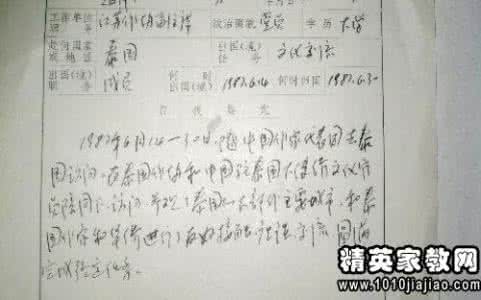 工作单位 江苏作协副主席 政治面貌 党员 学历 大学
职务
赴何国家 泰国 出国(境) 文化交流
或地区 任务
出国(境) 成员 何时 1987.6.14 何时回国 1987.6.30
职务 出国(境)
1987年6月14—30日,随中国作家代表团去泰
国访问。在泰国作协和中国驻泰国大使馆文化官
员陪同下,访问、参观了泰国大部分主要城市,和泰
国作家和华侨进行了友好接触座谈交流,圆满
完成任务。
精英家教网
www.1010jiajiao.com